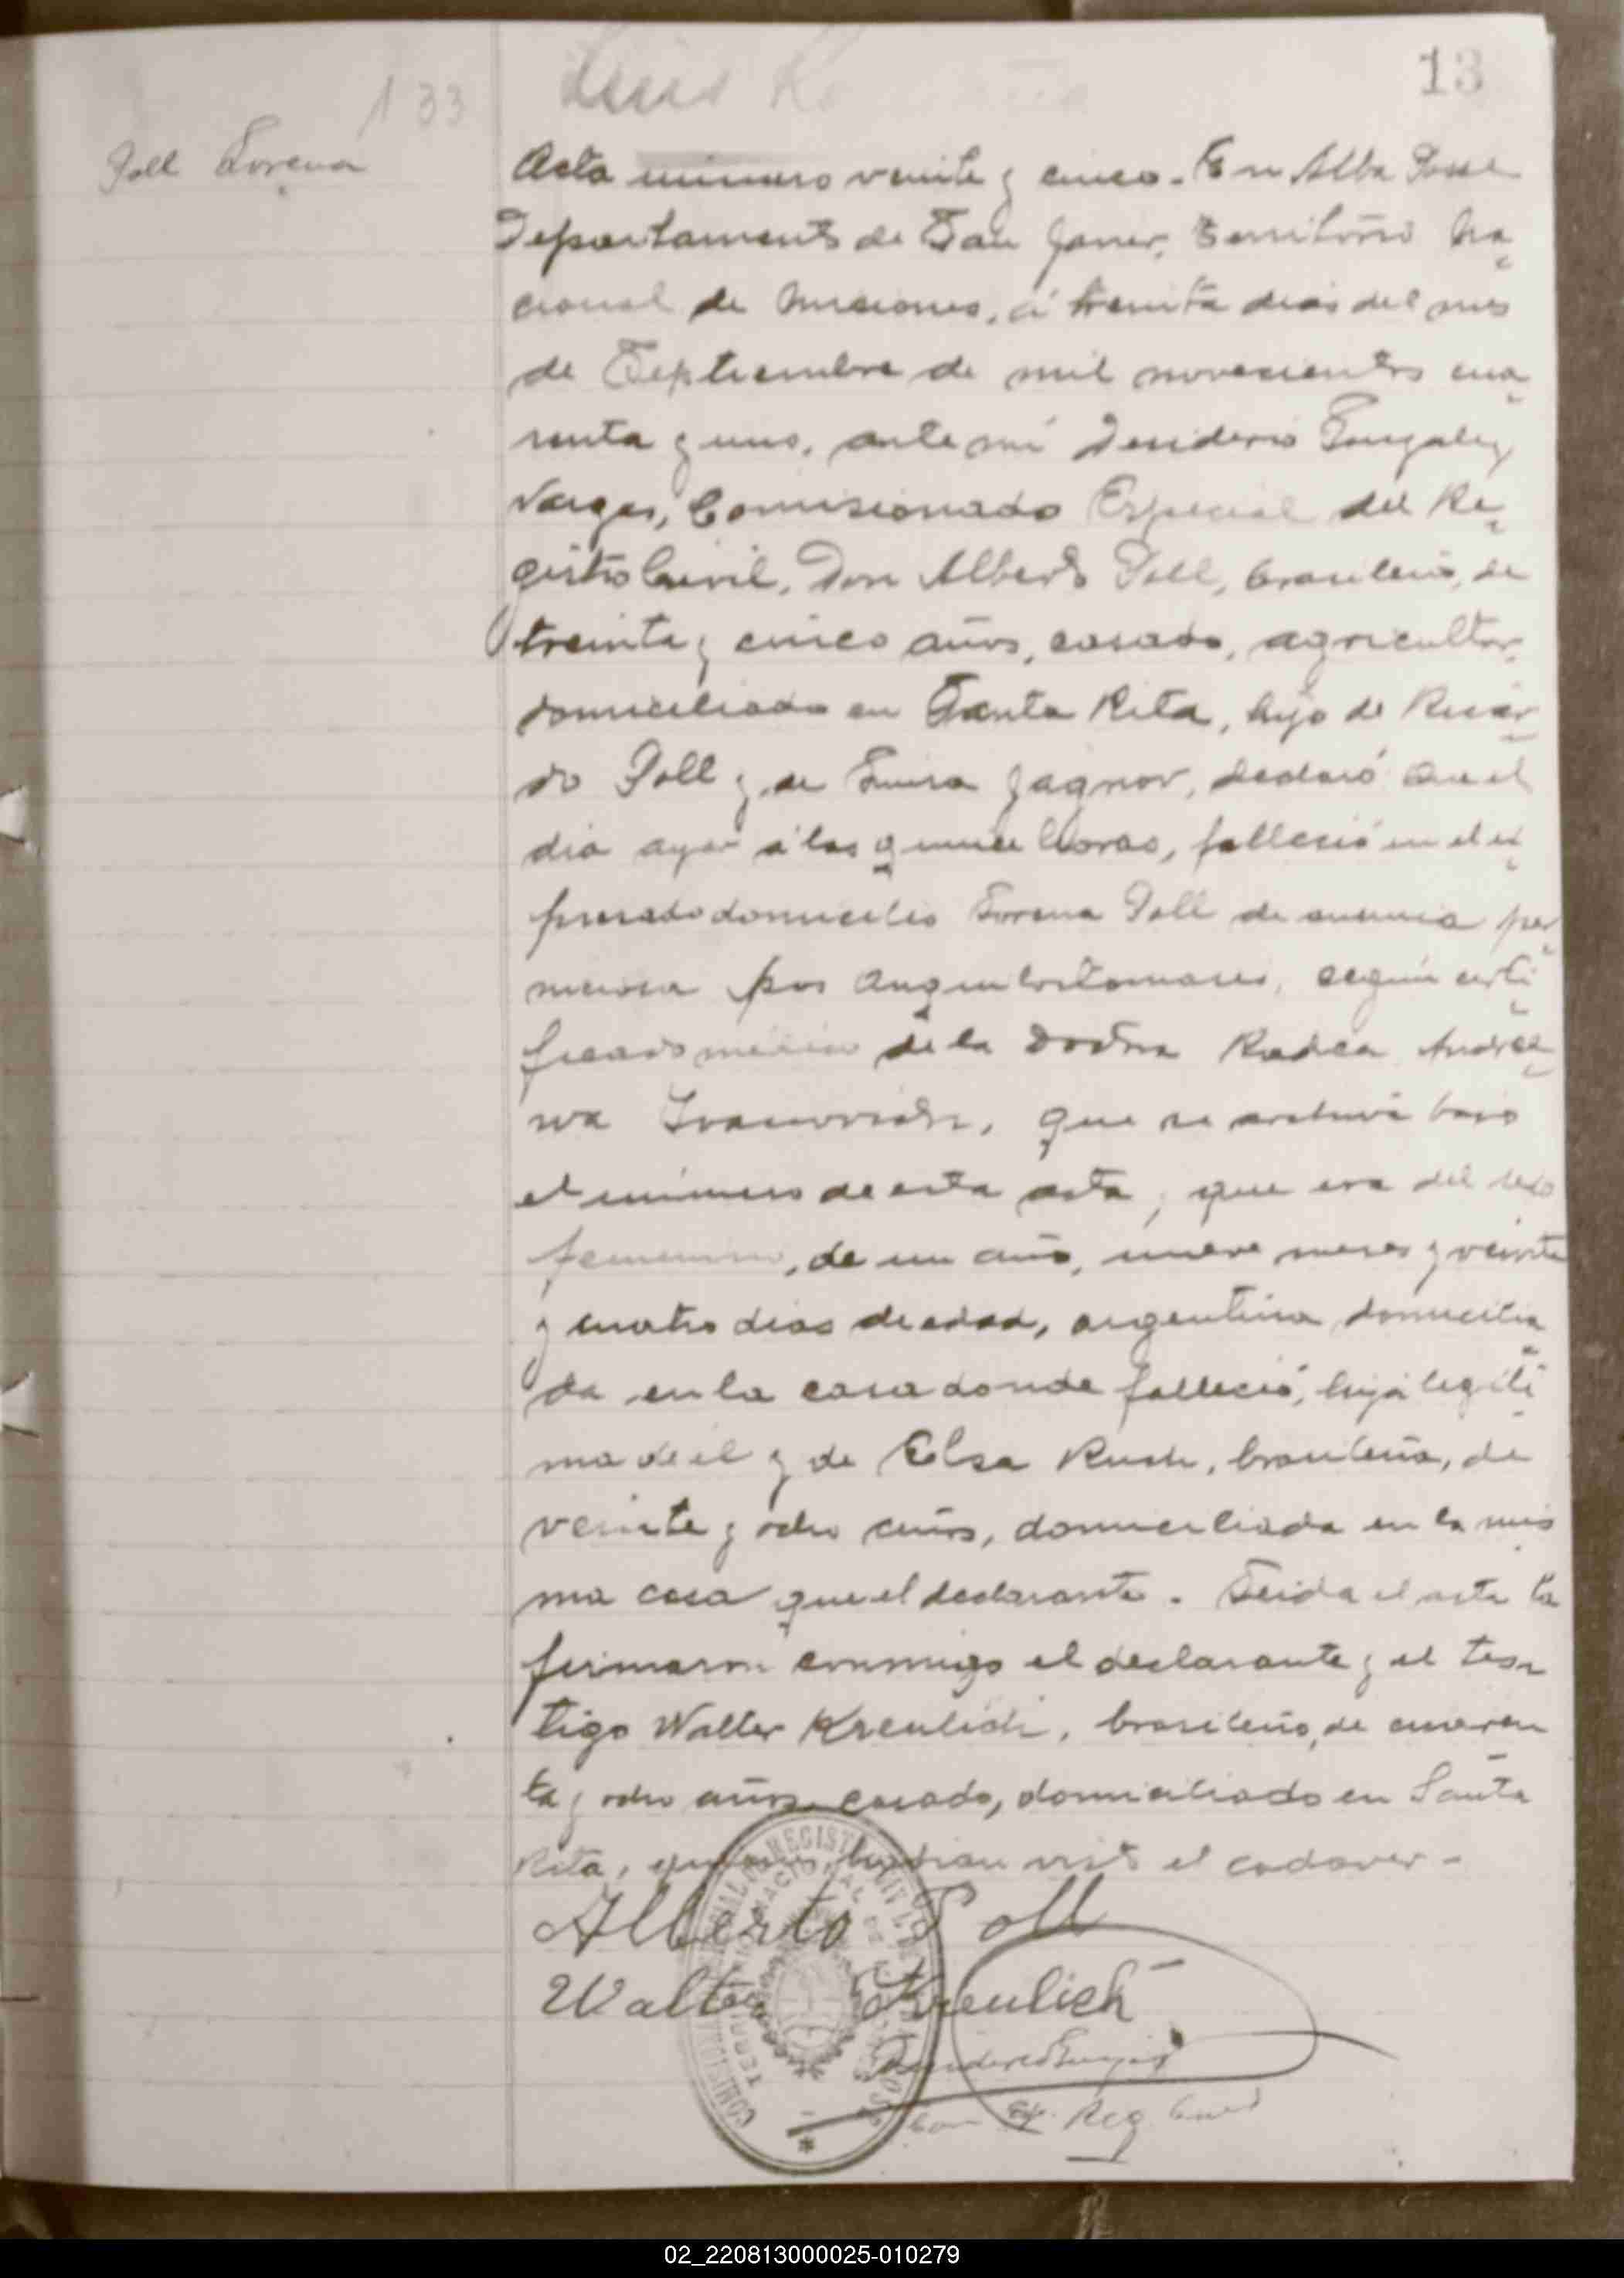 13
133
Poll Lorena
Acta número veinte y cinco. En Alba Posse
Departamento de San Javier, Territorio Na
cional de Misiones, á treinta dias del mes
de Septiembre de mil novecientos cua
renta y uno, ante mi Desiderio Gonzalez
Vargas, Comisionado Especial del Re
gistro Civil, Don Alberto Poll, brasileño, de
treinta y cinco años, casado, agricultor
domiciliado en Santa Rita, hijo de Ricar
do Poll y de Jagnov, declaró Que el
dia ayer á las quince horas, falleció en el ex
presado domicilio Lorena Poll de anemia per
niciosa por anquilostomasis, según certi
ficado médico de la Doctora Radca Andree
wa que se archiva bajo
el número de esta acta, que era del sexo
femenino, de un año, nueve meses y veinte
y cuatro dias de edad, argentina domicilia
da en la casa donde falleció, hija legiti
ma de él y de Elsa Rusch, brasileña, de
veinte y ocho años, domiciliada en la mis
ma casa que el declarante. Leida el acta la
firmaron conmigo el declarante y el tes
tigo Walter Kreulich, brasileño, de cuaren
ta y ocho años casado, domiciliado en Santa
Rita, quienes habian visto el cadaver -
Alberto Poll
Walter Kreulich
Com Esp. Reg. Civil
02_220813000025-010279